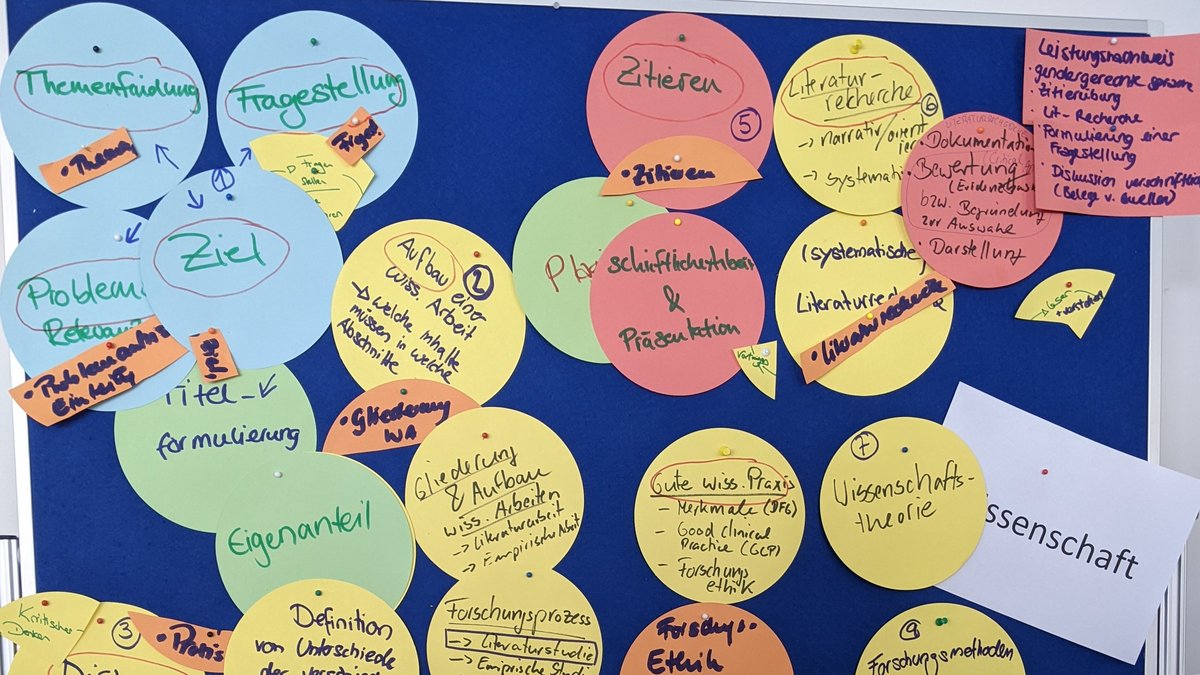 Themenfindung
• Thema
Fragestellung
Fragen
D Fragen
stellen
Problem
Relevanz
1
Ziel
Ziel
Titel-
formulierung
Eigenanteil
Aufbau einer
wiss. Arbeit
→ welche Inhalte
müssen in welche
Abschnitte
2
• Gliederung
WA
Gliederung
& Aufbau
wiss. Arbeiten
→ Literaturarbeit
→ Empirische Arbeit
Zitieren
5
• Zitieren
schriftliche Arbeit
&
Präsentation
Literatur-
recherche
6
→ narrativ/orient
ier
→ systemati
(systematische
Literaturrec
• Literaturrecherche
• Dokumentation
• Bewertung
bzw. Begründung
zur Auswahl
• Darstellung
Leistungsnachweis
• gendergerechte
• Zitierübung
• Lit-Recherche
• Formulierung einer
Fragestellung
• Diskussion verschriftlich
(Belege v. Quellen)
Gute wiss. Praxis
– Merkmale (DFG)
– Good clinical
Practice (GCP)
– Forschungs
ethik
7
Wissenschafts-
theorie
ssenschaft
Kritisches
Denken
3
• Praxis
Definition
von Unterschiede
Forschungsprozess
→ Literaturstudie
→ Empirische Studi
Forschungs-
Ethik
9
Forschungsmethoden